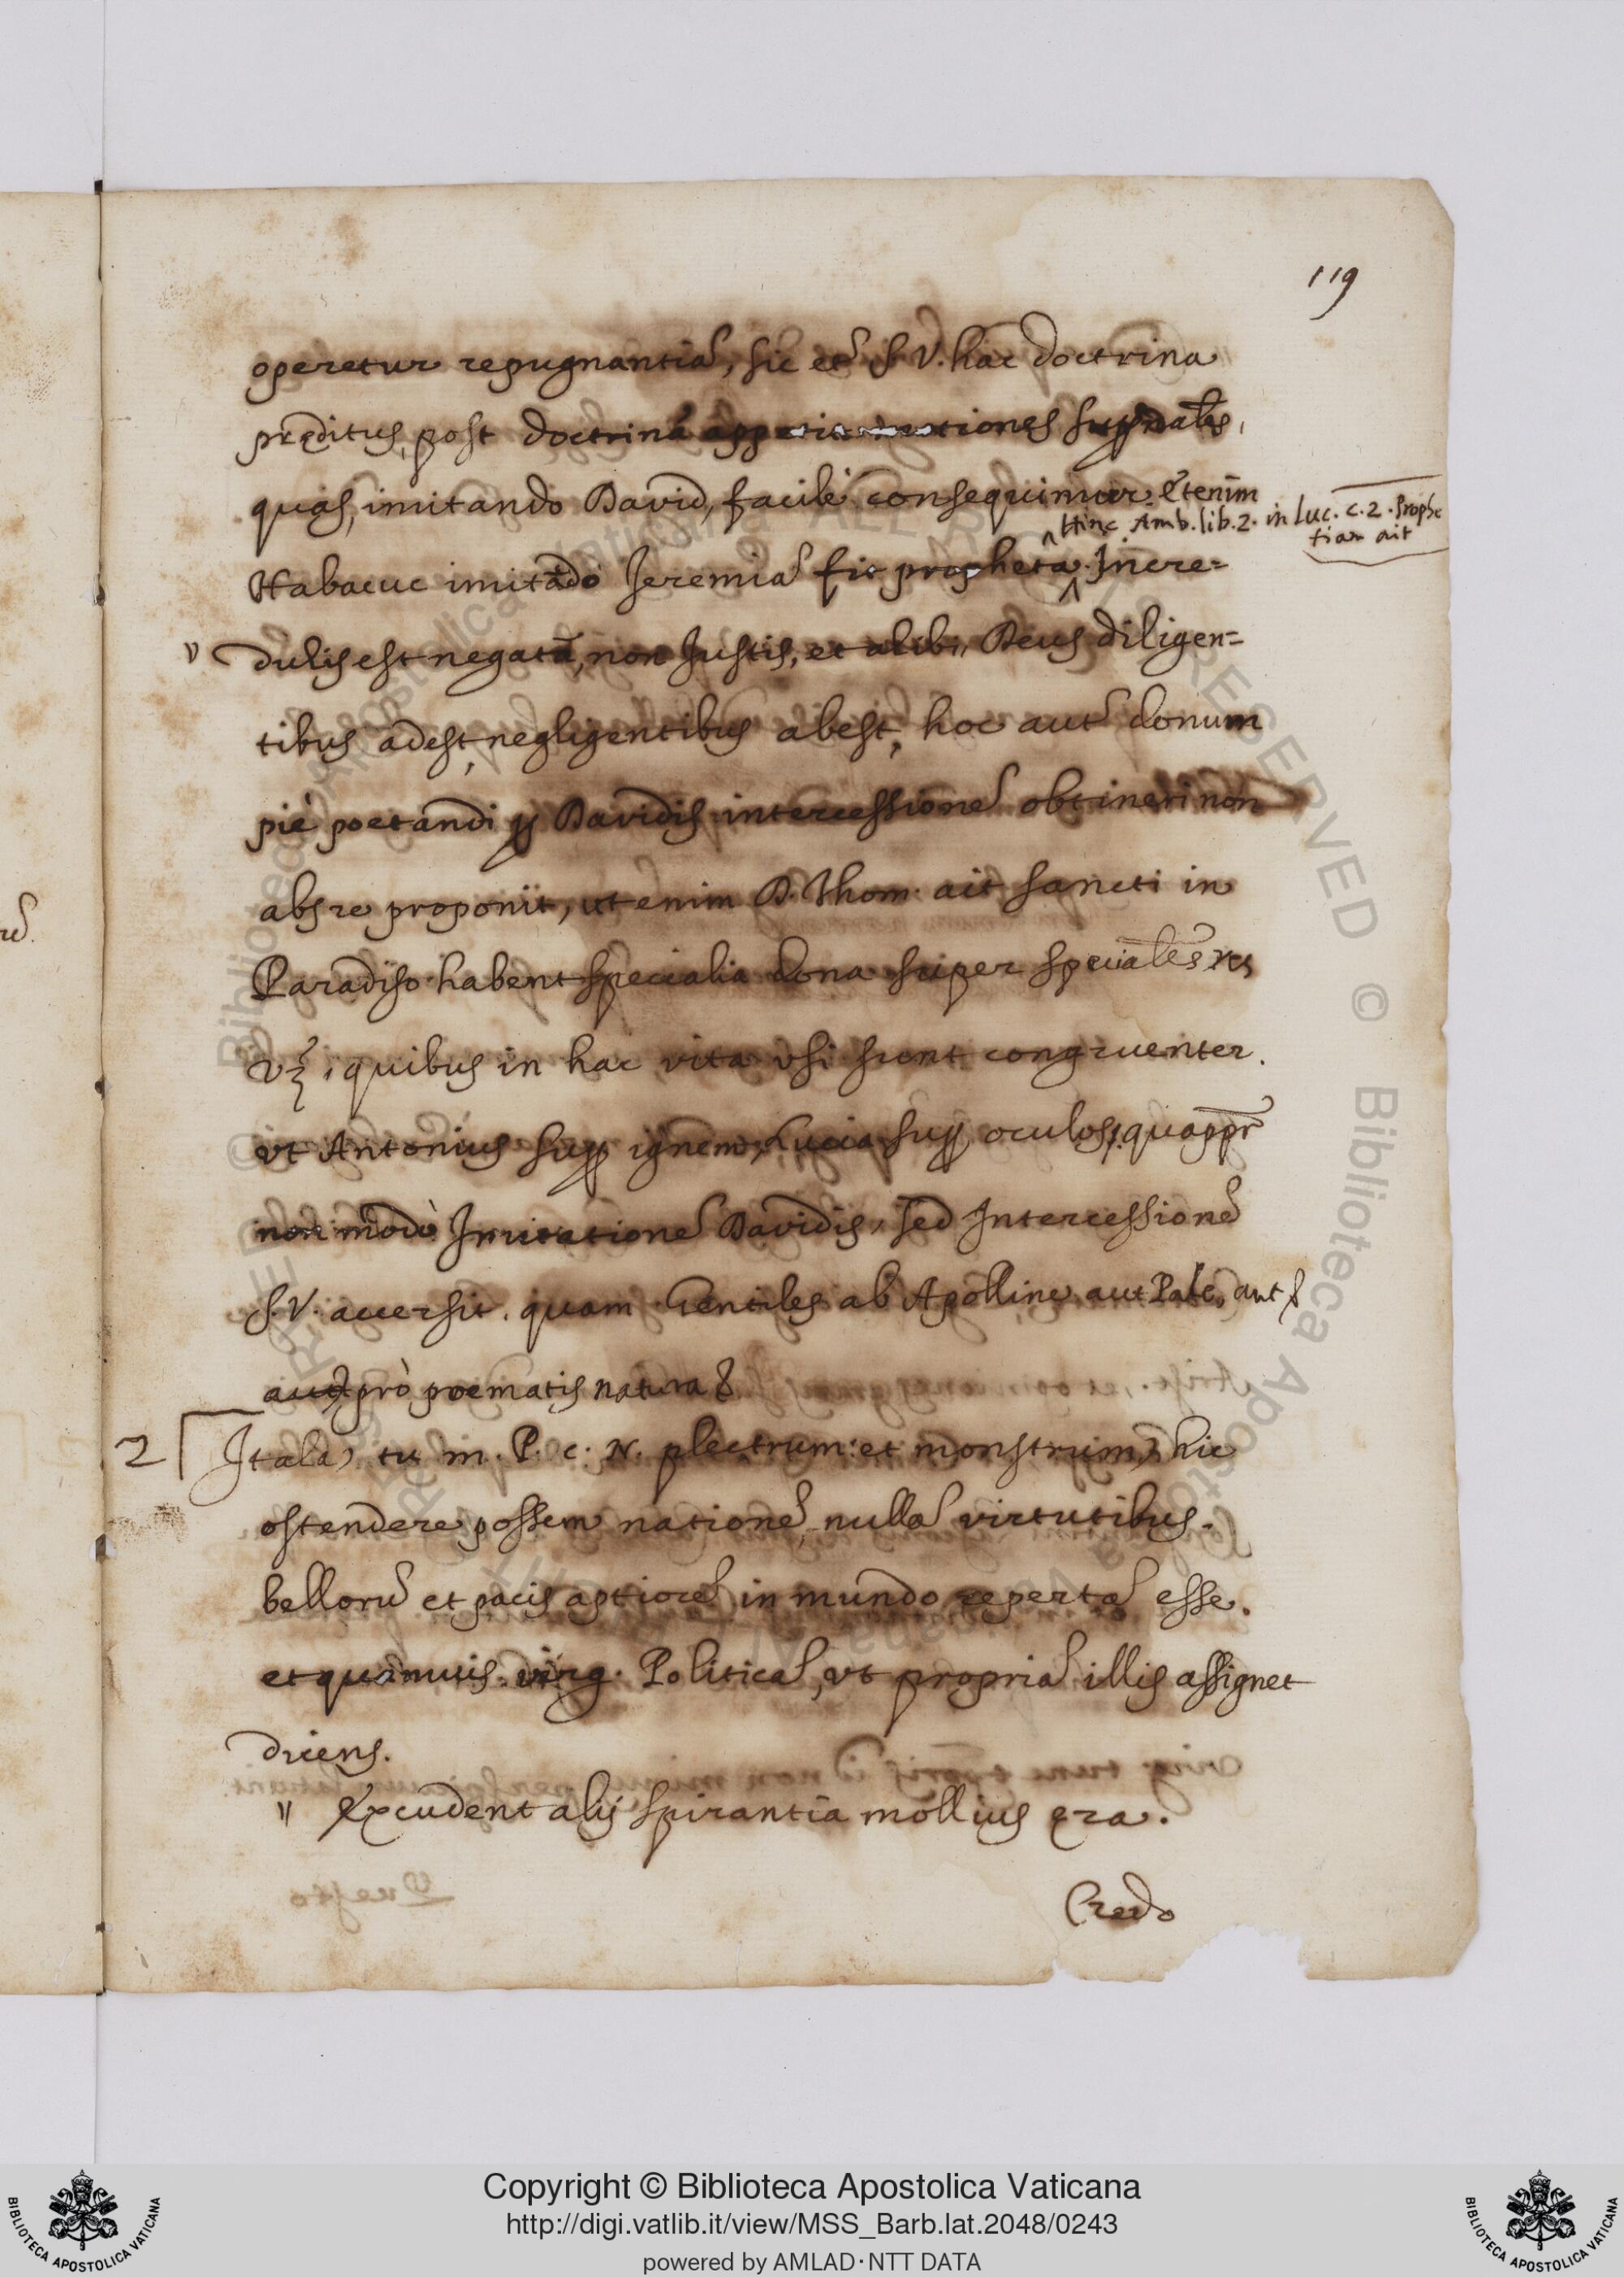 119
operetur repugnantiā, sic et S. V. hac doctrina
pręditus, post doctrinā supnāles,
quas, imitando David, facilè consequimur. Etenim
^ Hinc Amb. lib. 2. in Luc. c. 2. Prophe
tiam ait
Habacuc imitādo Jeremiā fit propheta. Incre=
" dulis est negata, non Justis, et alibi, Deus diligen=
tibus adest, negligentibus abest, hoc autē donum
piè poetandi p Davidis intercessionē obtineri non
abs re proponit, ut enim D. Thom. ait sancti in
Paradiso habent specialia dona super speciales res
vz, quibus in hac vita vsi sunt congruenter.
vt Antonius sup ignem, Lucia sup oculos, quappr̄
non modò Imitationē Davidis, sed Intercessionē
S. V. accersit. quam Gentiles ab Apolline, aut Pale, aut
prò poematis natura &
2 Itala, tu m. P. c. N. plectrum: et monstrum, hic
ostendere possem nationē nullā virtutibus
bellorū et pacis aptiorē in mundo repertā esse.
et quāmuis. virg. Politicā, vt propriā illis assignet
dicens.
" Excudent alij spirantia mollius ęra.
Credo
Copyright © Biblioteca Apostolica Vaticana
http://digi.vatlib.it/view/MSS_Barb.lat.2048/0243
powered by AMLAD·NTT DATA
BIBLIOTECA APOSTOLICA VATICANA
BIBLIOTECA APOSTOLICA VATICANA